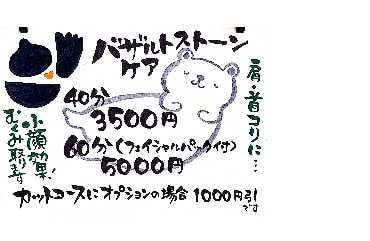 バザルトストーン
ケア
40分
3500円
60分(フェイシャルパック付)
5000円
カットコースにオプションの場合 1000円引
です
肩・首コリに…
小顔効果!
むくみ取ります